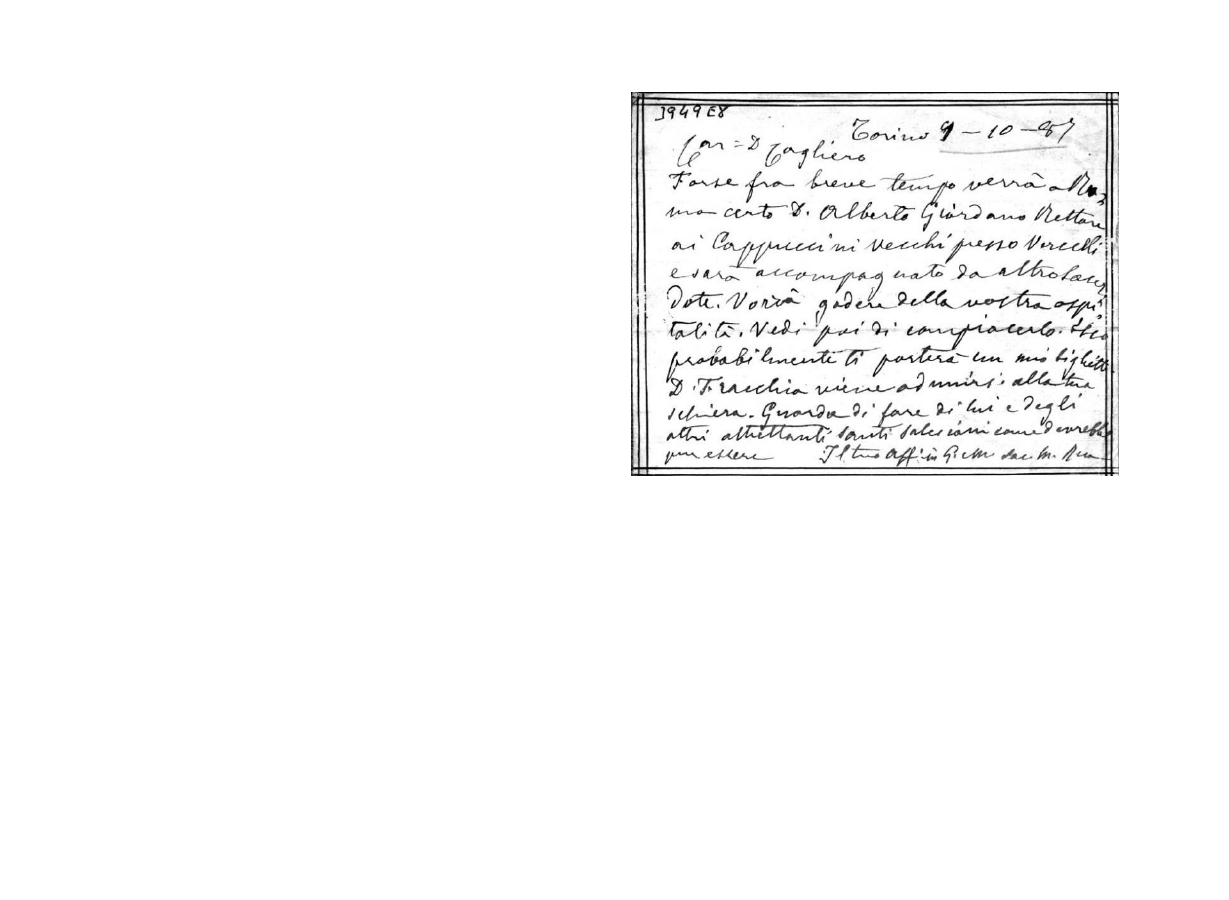 3949E8
Torino 9-10-87
Car = D Cagliero
Forse fra breve tempo verrà a Ro=
ma certo D. Alberto Giordano Rettore
ai Cappuccini vecchi presso Vercelli
e sarà accompagnato da altro Sacer
dote. Vorrà godere della vostra ospi
talità. Vedi poi di compiacerlo.
probabilmente ti porterà un mio biglietto.
D. Fracchia viene ad unirsi alla tua
schiera. Guarda di fare di lui e degli
altri altrettanti santi salesiani come dovrebbe
pur essere Il tuo aff. in G. e M. sac. M. Rua